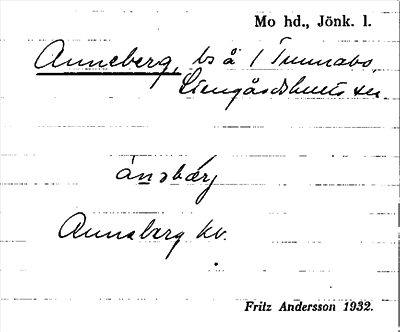 Mo hd., Jönk. l.
Anneberg, bs å 1 Tunnabo,
Stengårdshults sn
ànəbærj
Annaberg kv.
Fritz Andersson 1932.